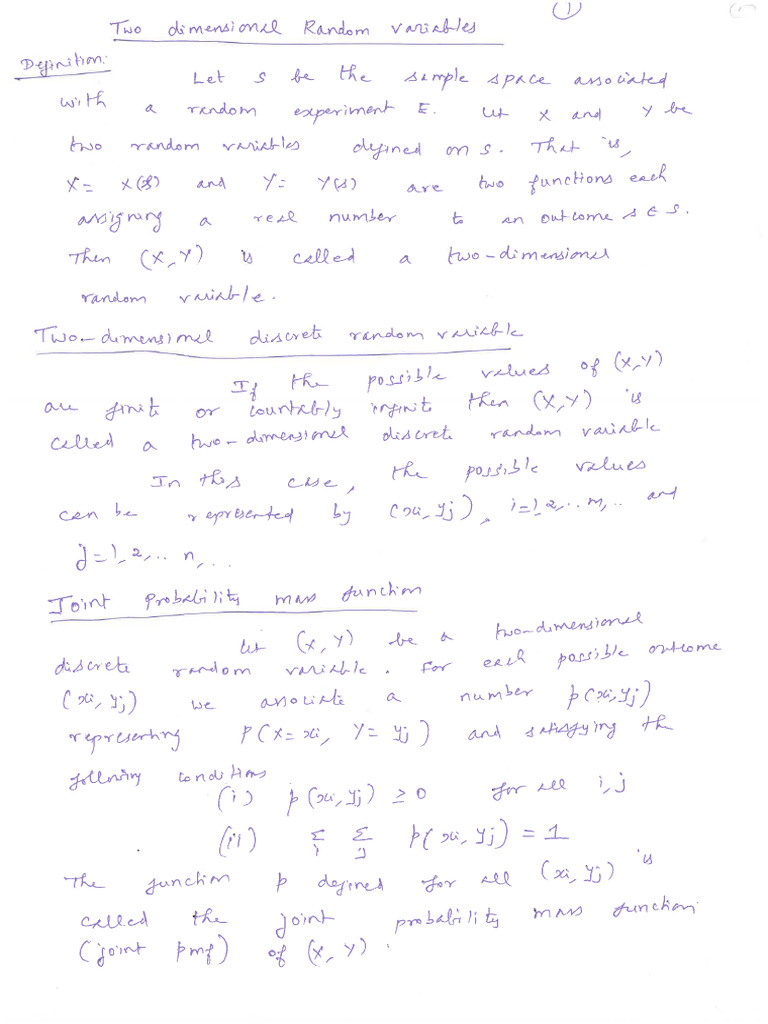 ①
Two dimensional Random variables
Definition:
Let S be the sample space associated
with a random experiment E. Let X and Y be
two random variables defined on S. That is,
X = X(s) and Y = Y(s) are two functions each
assigning a real number to an outcome s ∈ S.
Then (X, Y) is called a two-dimensional
random variable.
Two-dimensional discrete random variable
If the possible values of (X, Y)
are finite or countably infinite then (X, Y) is
called a two-dimensional discrete random variable
In this case, the possible values
can be represented by (xi, yj), i=1,2,.. m,.. and
j=1,2,.. n,...
Joint Probability mass function
Let (X, Y) be a two-dimensional
discrete random variable. For each possible outcome
(xi, yj) we associate a number p(xi, yj)
representing P(X = xi, Y = yj) and satisfying the
following conditions
(i) p(xi, yj) ≥ 0 for all i, j
(ii) Σi Σj p(xi, yj) = 1
The function p defined for all (xi, yj) is
called the joint probability mass function
(joint pmf) of (X, Y).